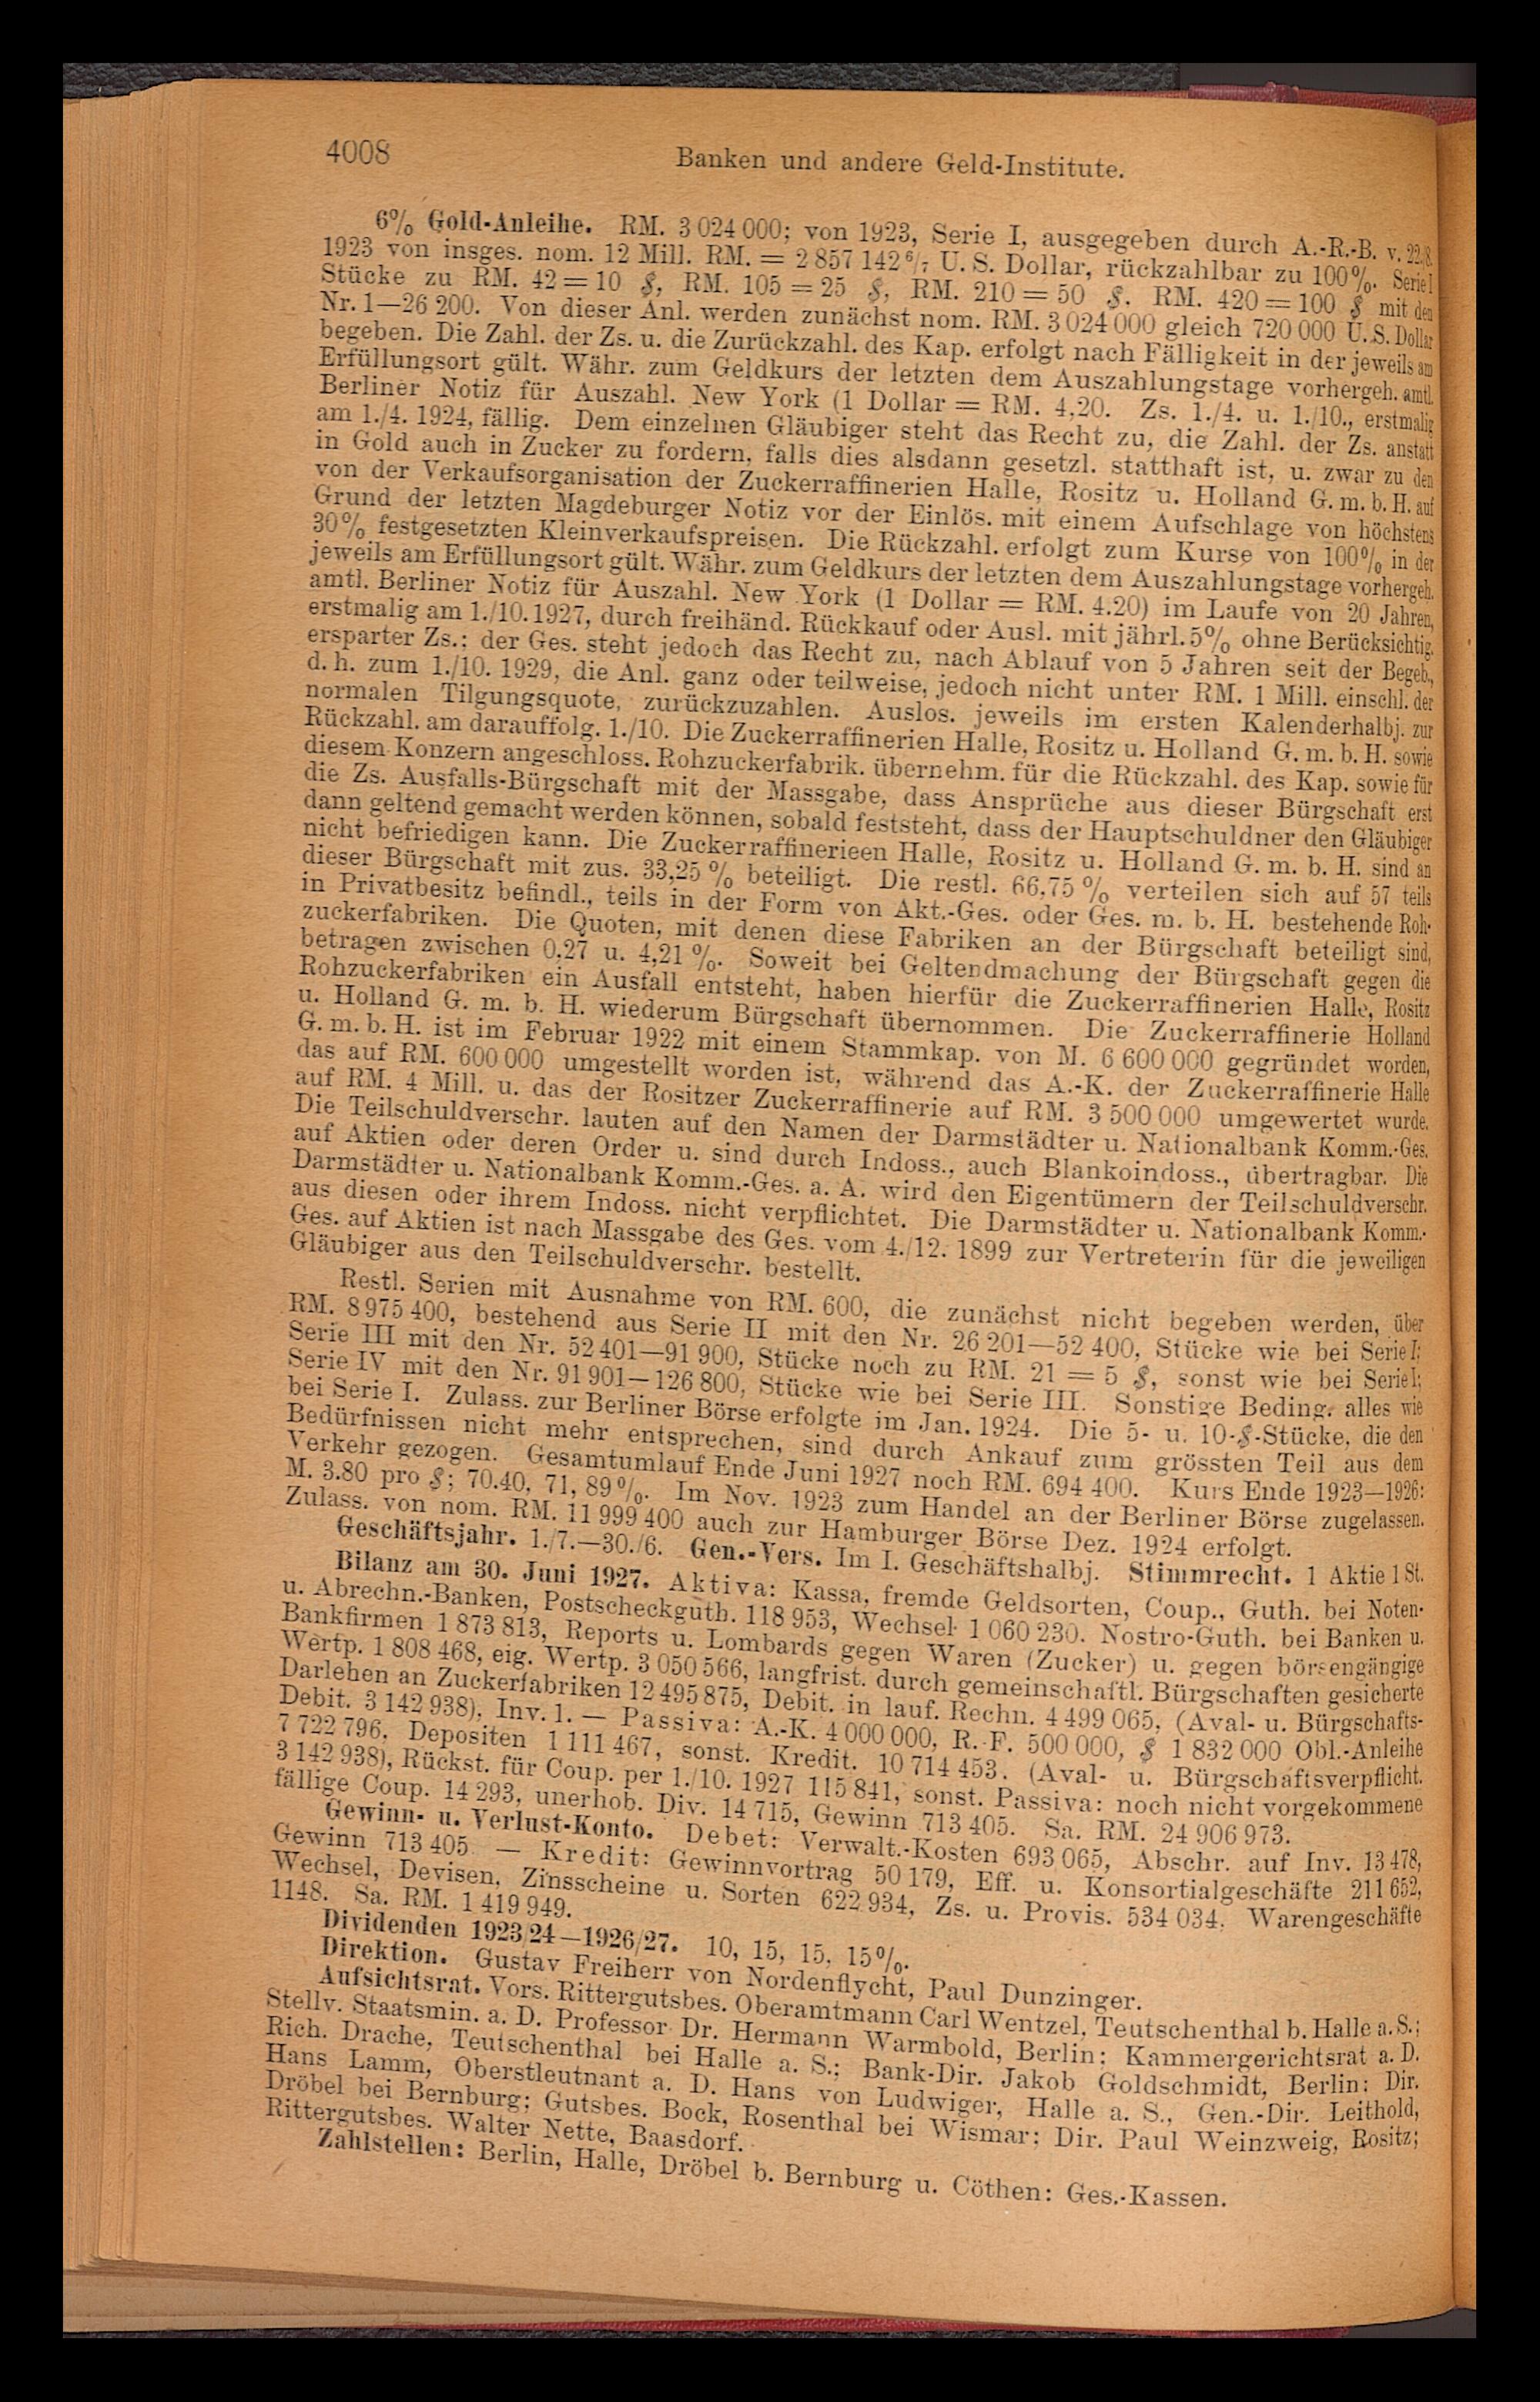 4008
Banken und andere Geld-Institute.
6% Gold-Anleihe. RM. 3 024 000; von 1923, Serie I, ausgegeben durch A.-R.-B. v. 22./8.
1923 von insges. nom. 12 Mill. RM. = 2 857 142 6/7 U. S. Dollar, rückzahlbar zu 100%. Serie I
Stücke zu RM. 42 = 10 $, RM. 105 = 25 $, RM. 210 = 50 $. RM. 420 = 100 $ mit den
Nr. 1—26 200. Von dieser Anl. werden zunächst nom. RM. 3 024 000 gleich 720 000 U. S. Dollar
begeben. Die Zahl. der Zs. u. die Zurückzahl. des Kap. erfolgt nach Fälligkeit in der jeweils am
Erfüllungsort gült. Währ. zum Geldkurs der letzten dem Auszahlungstage vorhergeh. amtl.
Berliner Notiz für Auszahl. New York (1 Dollar = RM. 4.20. Zs. 1./4. u. 1./10., erstmalig
am 1./4. 1924, fällig. Dem einzelnen Gläubiger steht das Recht zu, die Zahl. der Zs. anstatt
in Gold auch in Zucker zu fordern, falls dies alsdann gesetzl. statthaft ist, u. zwar zu den
von der Verkaufsorganisation der Zuckerraffinerien Halle, Rositz u. Holland G. m. b. H. auf
Grund der letzten Magdeburger Notiz vor der Einlös. mit einem Aufschlage von höchstens
30% festgesetzten Kleinverkaufspreisen. Die Rückzahl. erfolgt zum Kurse von 100% in der
jeweils am Erfüllungsort gült. Währ. zum Geldkurs der letzten dem Auszahlungstage vorhergeh.
amtl. Berliner Notiz für Auszahl. New York (1 Dollar = RM. 4.20) im Laufe von 20 Jahren,
erstmalig am 1./10. 1927, durch freihänd. Rückkauf oder Ausl. mit jährl. 5% ohne Berücksichtig.
ersparter Zs.; der Ges. steht jedoch das Recht zu, nach Ablauf von 5 Jahren seit der Begeb.,
d. h. zum 1./10. 1929, die Anl. ganz oder teilweise, jedoch nicht unter RM. 1 Mill. einschl. der
normalen Tilgungsquote, zurückzuzahlen. Auslos. jeweils im ersten Kalenderhalbj. zur
Rückzahl. am darauffolg. 1./10. Die Zuckerraffinerien Halle, Rositz u. Holland G. m. b. H. sowie
diesem Konzern angeschloss. Rohzuckerfabrik. übernehm. für die Rückzahl. des Kap. sowie für
die Zs. Ausfalls-Bürgschaft mit der Massgabe, dass Ansprüche aus dieser Bürgschaft erst
dann geltend gemacht werden können, sobald feststeht, dass der Hauptschuldner den Gläubiger
nicht befriedigen kann. Die Zuckerraffinerieen Halle, Rositz u. Holland G. m. b. H. sind an
dieser Bürgschaft mit zus. 33,25 % beteiligt. Die restl. 66,75 % verteilen sich auf 57 teils
in Privatbesitz befindl., teils in der Form von Akt.-Ges. oder Ges. m. b. H. bestehende Roh-
zuckerfabriken. Die Quoten, mit denen diese Fabriken an der Bürgschaft beteiligt sind,
betragen zwischen 0,27 u. 4,21 %. Soweit bei Geltendmachung der Bürgschaft gegen die
Rohzuckerfabriken ein Ausfall entsteht, haben hierfür die Zuckerraffinerien Halle, Rositz
u. Holland G. m. b. H. wiederum Bürgschaft übernommen. Die Zuckerraffinerie Holland
G. m. b. H. ist im Februar 1922 mit einem Stammkap. von M. 6 600 000 gegründet worden,
das auf RM. 600 000 umgestellt worden ist, während das A.-K. der Zuckerraffinerie Halle
auf RM. 4 Mill. u. das der Rositzer Zuckerraffinerie auf RM. 3 500 000 umgewertet wurde.
Die Teilschuldverschr. lauten auf den Namen der Darmstädter u. Nationalbank Komm.-Ges.
auf Aktien oder deren Order u. sind durch Indoss., auch Blankoindoss., übertragbar. Die
Darmstädter u. Nationalbank Komm.-Ges. a. A. wird den Eigentümern der Teilschuldverschr.
aus diesen oder ihrem Indoss. nicht verpflichtet. Die Darmstädter u. Nationalbank Komm.-
Ges. auf Aktien ist nach Massgabe des Ges. vom 4./12. 1899 zur Vertreterin für die jeweiligen
Gläubiger aus den Teilschuldverschr. bestellt.
Restl. Serien mit Ausnahme von RM. 600, die zunächst nicht begeben werden, über
RM. 8 975 400, bestehend aus Serie II mit den Nr. 26 201—52 400, Stücke wie bei Serie I;
Serie III mit den Nr. 52 401—91 900, Stücke noch zu RM. 21 = 5 $, sonst wie bei Serie I;
Serie IV mit den Nr. 91 901—126 800, Stücke wie bei Serie III. Sonstige Beding. alles wie
bei Serie I. Zulass. zur Berliner Börse erfolgte im Jan. 1924. Die 5- u. 10-$-Stücke, die den
Bedürfnissen nicht mehr entsprechen, sind durch Ankauf zum grössten Teil aus dem
Verkehr gezogen. Gesamtumlauf Ende Juni 1927 noch RM. 694 400. Kurs Ende 1923—1926:
M. 3.80 pro $; 70.40, 71, 89%. Im Nov. 1923 zum Handel an der Berliner Börse zugelassen.
Zulass. von nom. RM. 11 999 400 auch zur Hamburger Börse Dez. 1924 erfolgt.
Geschäftsjahr. 1./7.—30./6. Gen.-Vers. Im I. Geschäftshalbj. Stimmrecht. 1 Aktie 1 St.
Bilanz am 30. Juni 1927. Aktiva: Kassa, fremde Geldsorten, Coup., Guth. bei Noten-
u. Abrechn.-Banken, Postscheckguth. 118 953, Wechsel 1 060 230. Nostro-Guth. bei Banken u.
Bankfirmen 1 873 813, Reports u. Lombards gegen Waren (Zucker) u. gegen börsengängige
Wertp. 1 808 468, eig. Wertp. 3 050 566, langfrist. durch gemeinschaftl. Bürgschaften gesicherte
Darlehen an Zuckerfabriken 12 495 875, Debit. in lauf. Rechn. 4 499 065, (Aval- u. Bürgschafts-
Debit. 3 142 938), Inv. 1. — Passiva: A.-K. 4 000 000, R.-F. 500 000, $ 1 832 000 Obl.-Anleihe
7 722 796, Depositen 1 111 467, sonst. Kredit. 10 714 453. (Aval- u. Bürgschaftsverpflicht.
3 142 938), Rückst. für Coup. per 1./10. 1927 115 841, sonst. Passiva: noch nicht vorgekommene
fällige Coup. 14 293, unerhob. Div. 14 715, Gewinn 713 405. Sa. RM. 24 906 973.
Gewinn- u. Verlust-Konto. Debet: Verwalt.-Kosten 693 065, Abschr. auf Inv. 13 478,
Gewinn 713 405. — Kredit: Gewinnvortrag 50 179, Eff. u. Konsortialgeschäfte 211 652,
Wechsel, Devisen, Zinsscheine u. Sorten 622 934, Zs. u. Provis. 534 034, Warengeschäfte
1148. Sa. RM. 1 419 949.
Dividenden 1923/24—1926/27. 10, 15, 15, 15%.
Direktion. Gustav Freiherr von Nordenflycht, Paul Dunzinger.
Aufsichtsrat. Vors. Rittergutsbes. Oberamtmann Carl Wentzel, Teutschenthal b. Halle a. S.;
Stellv. Staatsmin. a. D. Professor Dr. Hermann Warmbold, Berlin; Kammergerichtsrat a. D.
Rich. Drache, Teutschenthal bei Halle a. S.; Bank-Dir. Jakob Goldschmidt, Berlin; Dir.
Hans Lamm, Oberstleutnant a. D. Hans von Ludwiger, Halle a. S., Gen.-Dir. Leithold,
Dröbel bei Bernburg; Gutsbes. Bock, Rosenthal bei Wismar; Dir. Paul Weinzweig, Rositz;
Rittergutsbes. Walter Nette, Baasdorf.
Zahlstellen: Berlin, Halle, Dröbel b. Bernburg u. Cöthen: Ges.-Kassen.